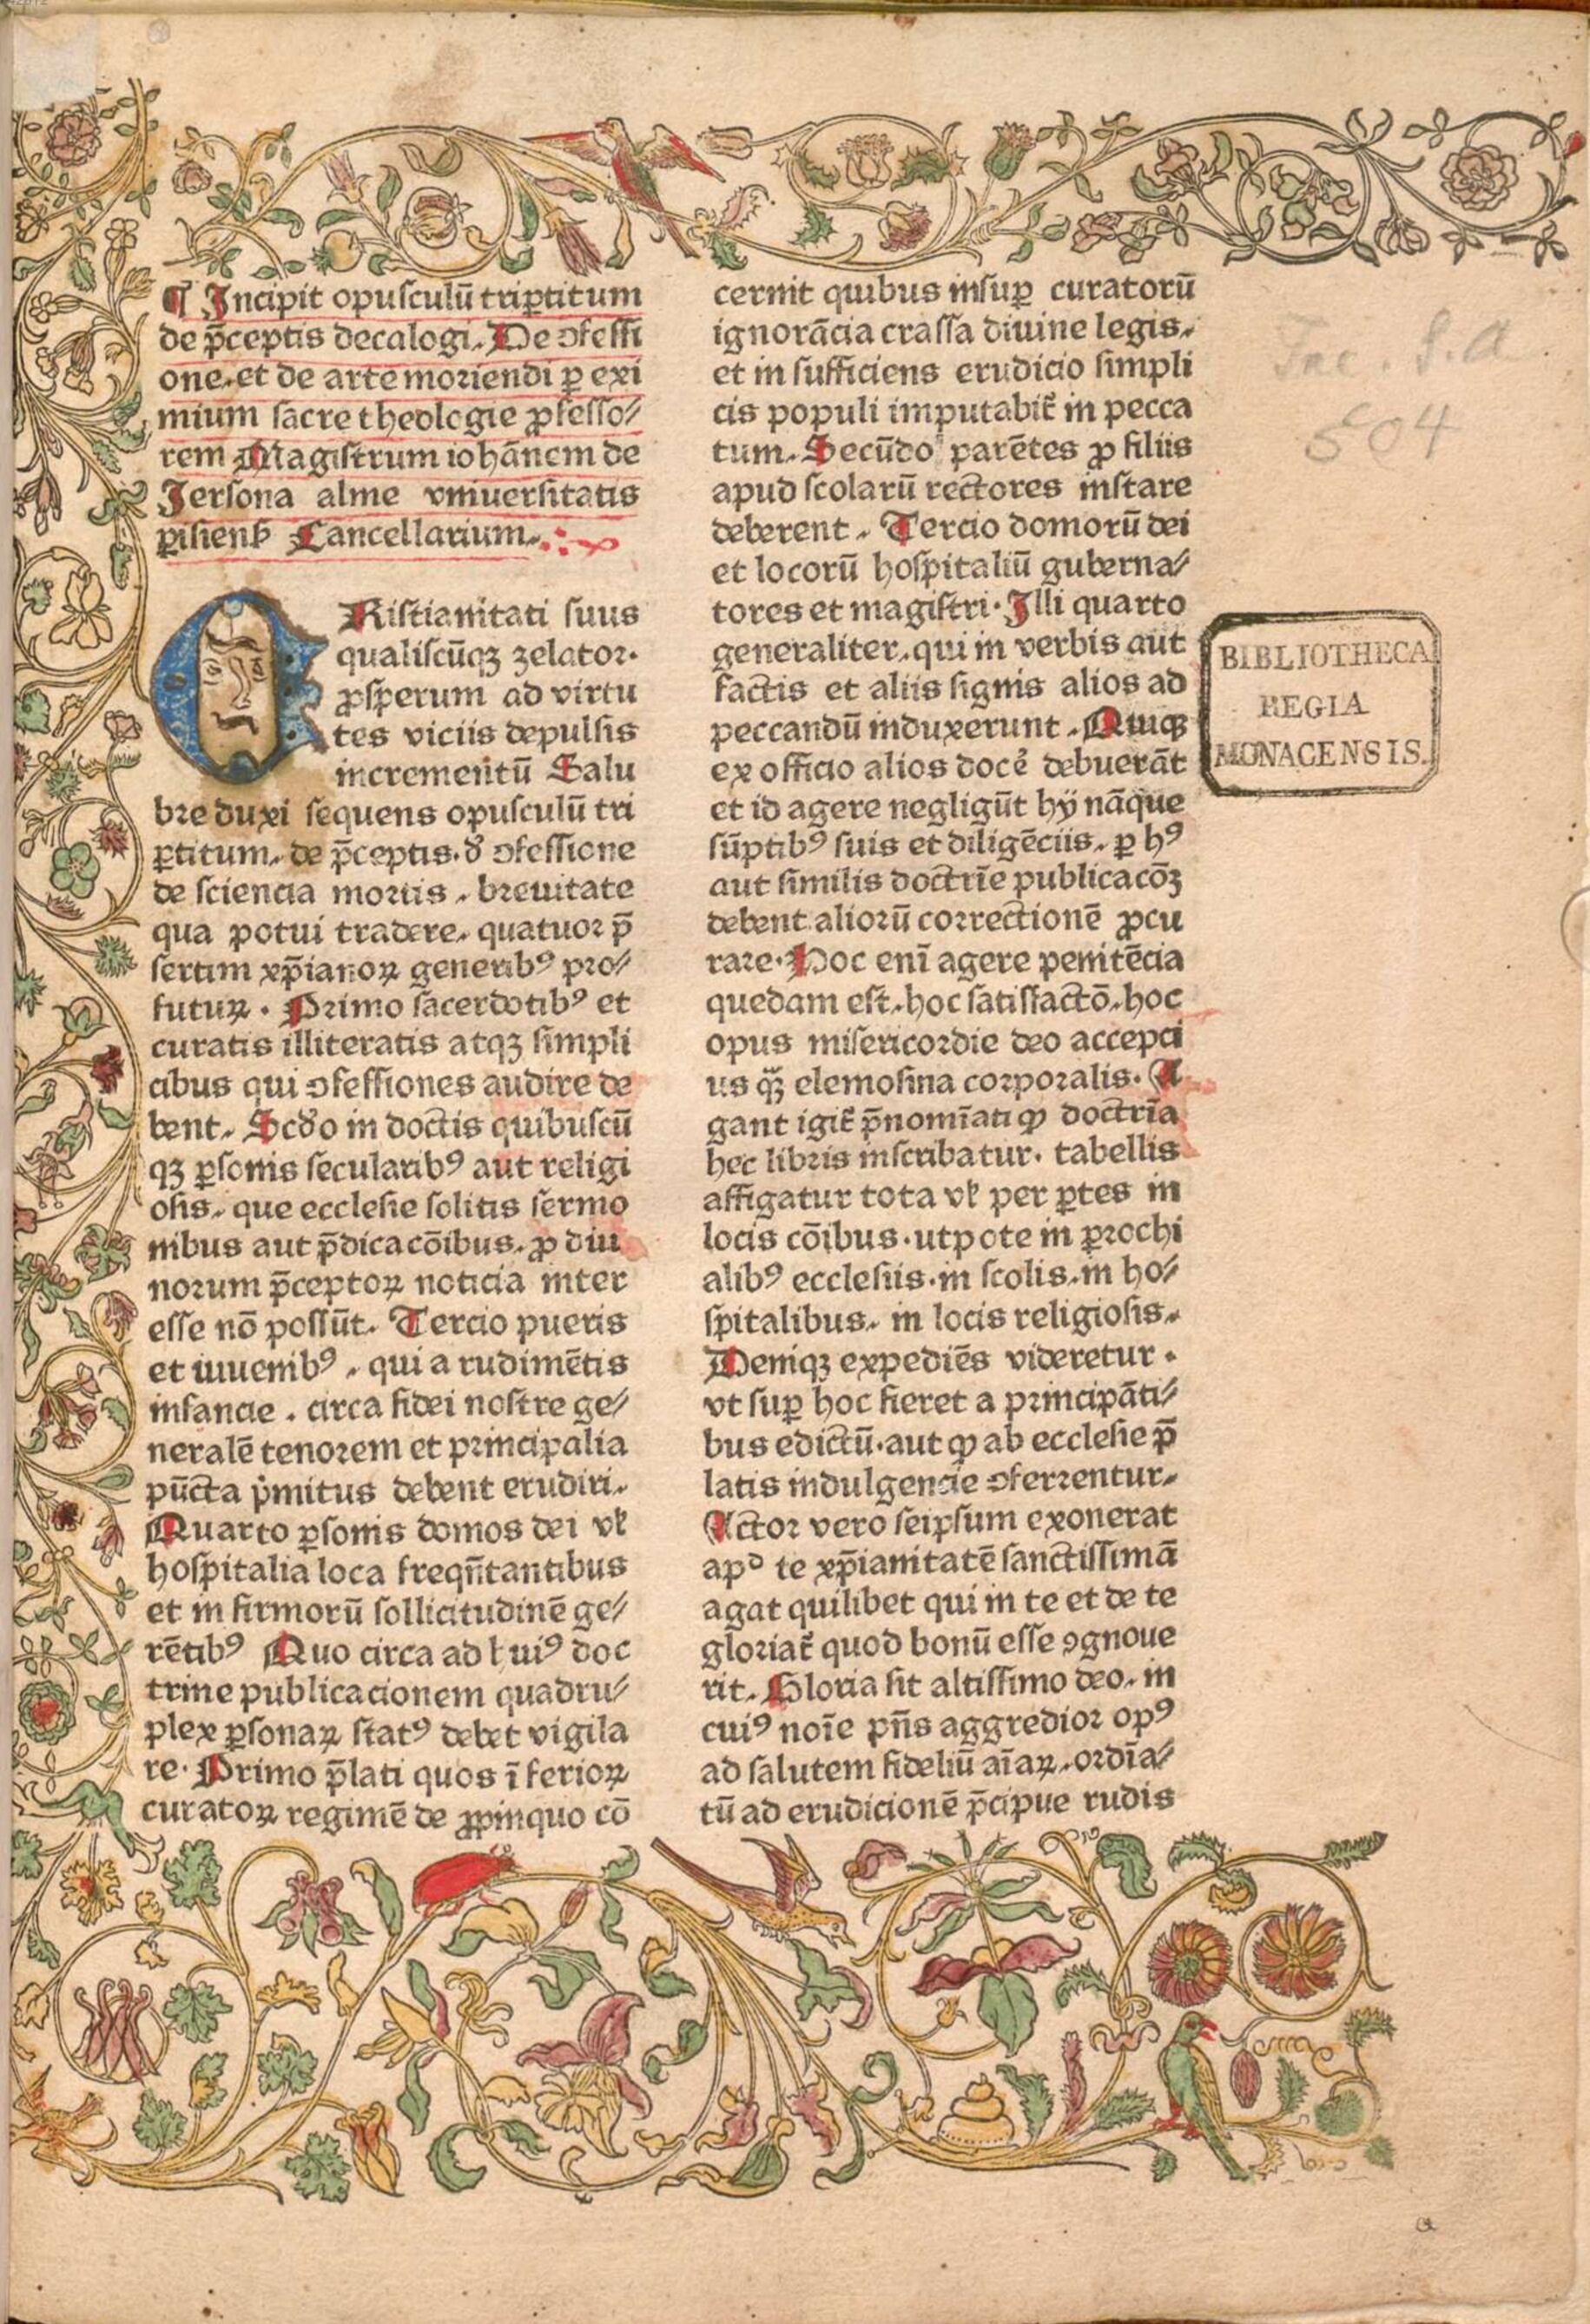 ¶ Incipit opusculū triꝑtitum
de p̄ceptis decalogi. De ↄfessi
one. et de arte moriendi ꝑ exi
mium sacre theologie ꝓfesso⸗
rem Magistrum iohānem de
Jersona alme vniuersitatis
ꝑisiensꝭ Cancellarium.
Ristianitati suus
qualiscūqꝫ zelator.
ꝓsperum ad virtu
tes viciis depulsis
incrementū Salu
bre duxi sequens opusculū tri
ꝑtitum. de p̄ceptis. ꝺ̄ ↄfessione
de sciencia mortis. breuitate
qua potui tradere. quatuor p̄
sertim xp̄ianoꝝ generibꝰ pro⸗
futuꝝ. Primo sacerdotibꝰ et
curatis illiteratis atqꝫ simpli
cibus qui ↄfessiones audire de
bent. Scd̄o in doctis quibuscū
qꝫ ꝑsonis secularibꝰ aut religi
osis. que ecclesie solitis sermo
nibus aut p̄dicacōibus. ꝓ diu
norum p̄ceptoꝝ noticia inter
esse nō possūt. Tercio pueris
et iuuenibꝰ. qui a rudimētis
infancie. circa fidei nostre ge⸗
neralē tenorem et principalia
pūcta pͥmitus debent erudiri.
Quarto ꝑsonis domos dei vl̓
hospitalia loca freqn̄tantibus
et in firmorū sollicitudinē ge⸗
rētibꝰ Quo circa ad huiꝰ doc
trine publicacionem quadru⸗
plex ꝑsonaꝝ statꝰ debet vigila
re. Primo p̄lati quos ī ferioꝝ
curatoꝝ regimē de ꝓpinquo cō
cernit quibus insuꝑ curatorū
ignorācia crassa diuine legis.
et in sufficiens erudicio simpli
cis populi imputabit̄ in pecca
tum. Secūdo parētes ꝓ filiis
apud scolarū rectores instare
deberent. Tercio domorū dei
et locorū hospitaliū guberna⸗
tores et magistri. Illi quarto
generaliter. qui in verbis aut
factis et aliis signis alios ad
peccandū induxerunt. Quiqꝫ
ex officio alios docē debuerāt
et id agere negligūt hÿ nāque
sūptibꝰ suis et diligēciis. ꝑ hꝰ
aut similis doctrīe publicacōꝫ
debent aliorū correctionē ꝓcu
rare. Hoc enī agere penitēcia
quedam est. hoc satisfactō. hoc
opus misericordie deo accepci
us qͣꝫ elemosina corporalis. A
gant igit̄ p̄nomīati ꝙ doctrīa
hec libris inscribatur. tabellis
affigatur tota vl̓ per ꝑtes in
locis cōibus. utpote in ꝑrochi
alibꝰ ecclesiis. in scolis. in ho⸗
spitalibus. in locis religiosis.
Deniqꝫ expediēs videretur.
vt suꝑ hoc fieret a principāti⸗
bus edictū. aut ꝙ ab ecclesie p̄
latis indulgencie ↄferrentur.
Actor vero seipsum exonerat
apᵈ te xp̄ianitatē sanctissimā
agat quilibet qui in te et de te
gloriat̄ quod bonū esse ꝯgnoue
rit. Gloria sit altissimo deo. in
cuiꝰ noīe pn̄s aggredior opꝰ
ad salutem fideliū aīaꝝ. ordīa⸗
tū ad erudicionē p̄cipue rudis
Inc. s. a
504
BIBLIOTHECA
REGIA
MONACENSIS.